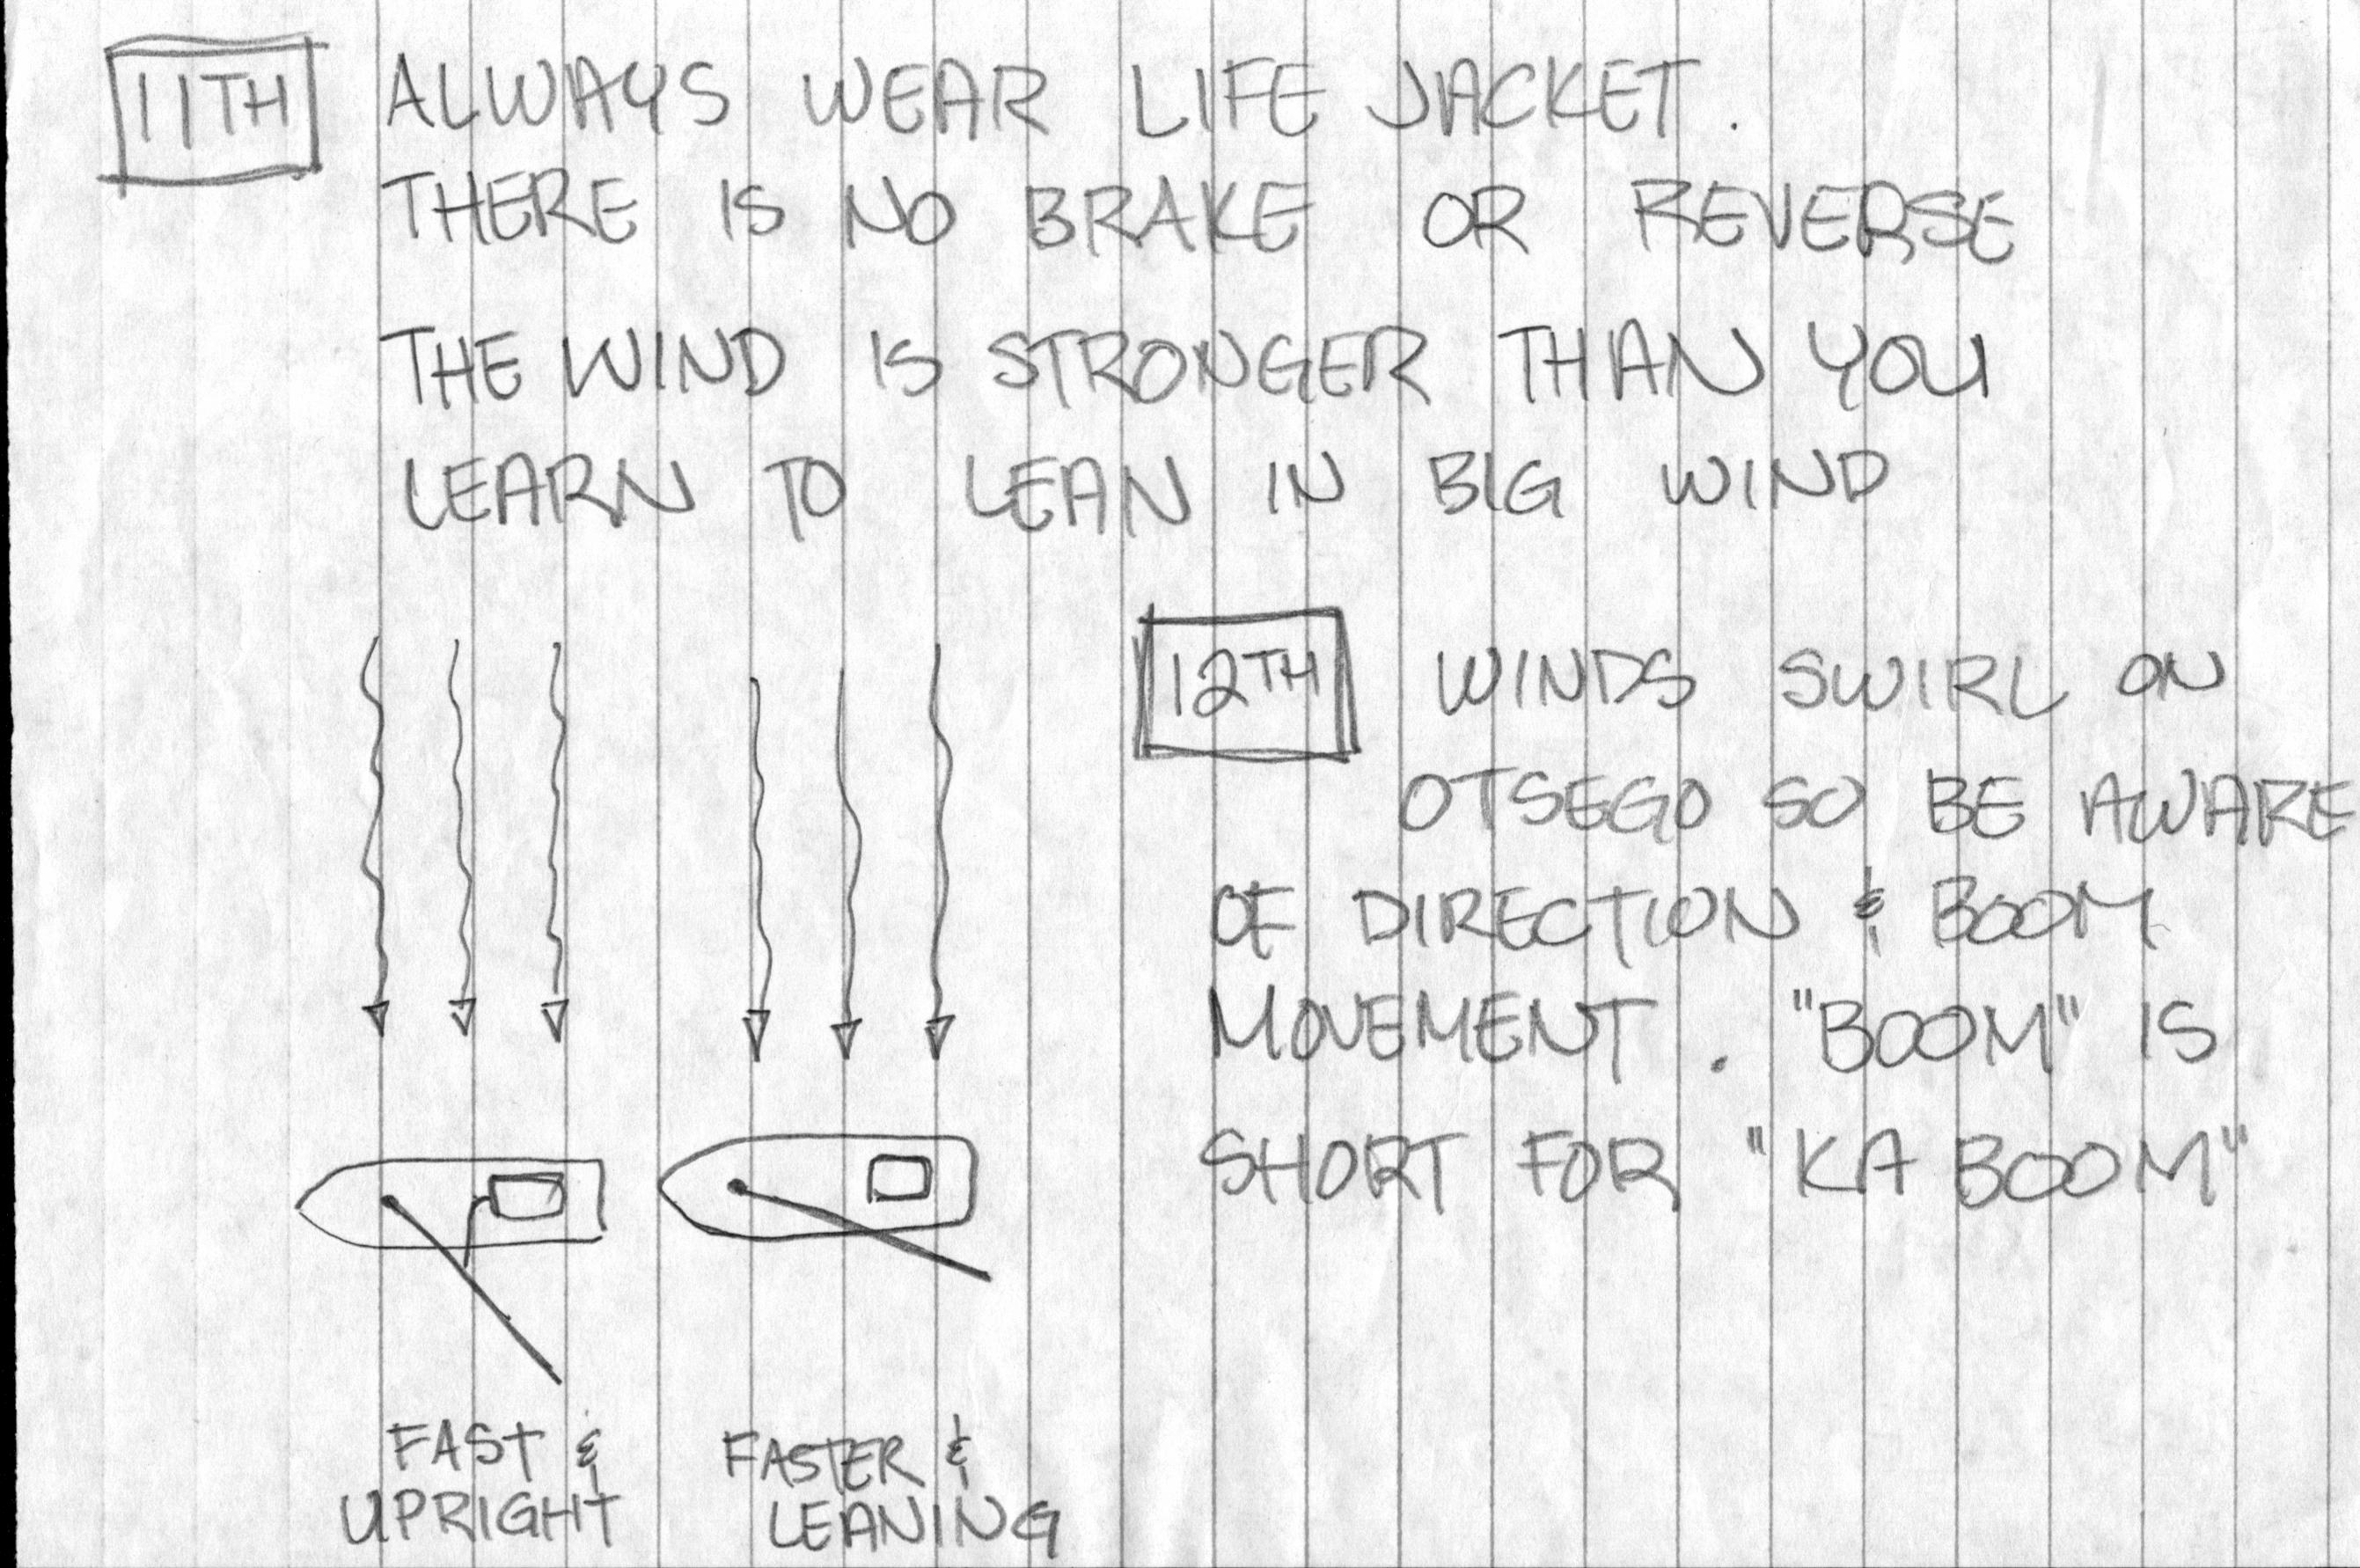 11TH ALWAYS WEAR LIFE JACKET.
THERE IS NO BRAKE OR REVERSE
THE WIND IS STRONGER THAN YOU
LEARN TO LEAN IN BIG WIND
12TH WINDS SWIRL ON
OTSEGO SO BE AWARE
OF DIRECTION & BOOM
MOVEMENT. "BOOM" IS
SHORT FOR "KA BOOM"
FAST &
UPRIGHT
FASTER &
LEANING